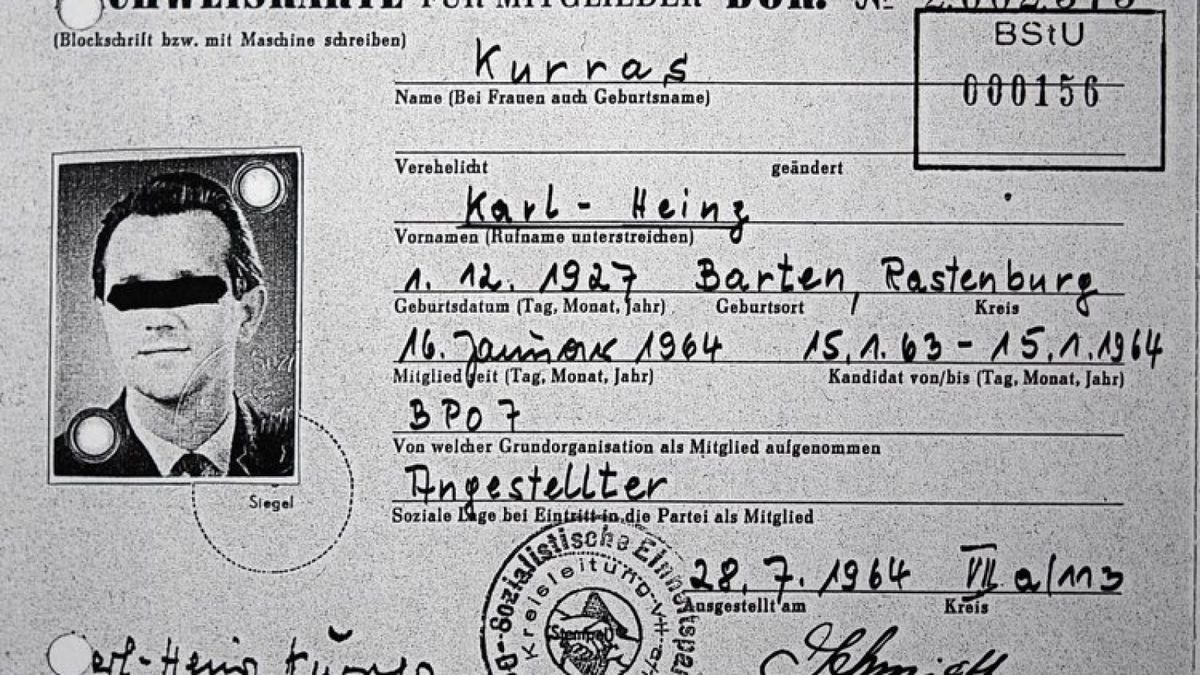 NACHWEISKARTE FÜR MITGLIEDER DOK. №
(Blockschrift bzw. mit Maschine schreiben)
BStU
000156
Kurras
Name (Bei Frauen auch Geburtsname)
Verehelicht geändert
Karl-Heinz
Vornamen (Rufname unterstreichen)
1. 12. 1927 Barten, Rastenburg
Geburtsdatum (Tag, Monat, Jahr) Geburtsort Kreis
16. Januar 1964 15.1.63 - 15.1.1964
Mitglied seit (Tag, Monat, Jahr) Kandidat von/bis (Tag, Monat, Jahr)
BPO 7
Von welcher Grundorganisation als Mitglied aufgenommen
Angestellter
Siegel
Soziale Lage bei Eintritt in die Partei als Mitglied
Sozialistische Einheitspar
Kreisleitung VII
Stempel
28. 7. 1964 VII a/113
Ausgestellt am Kreis
Karl-Heinz Kurras
Schmidt